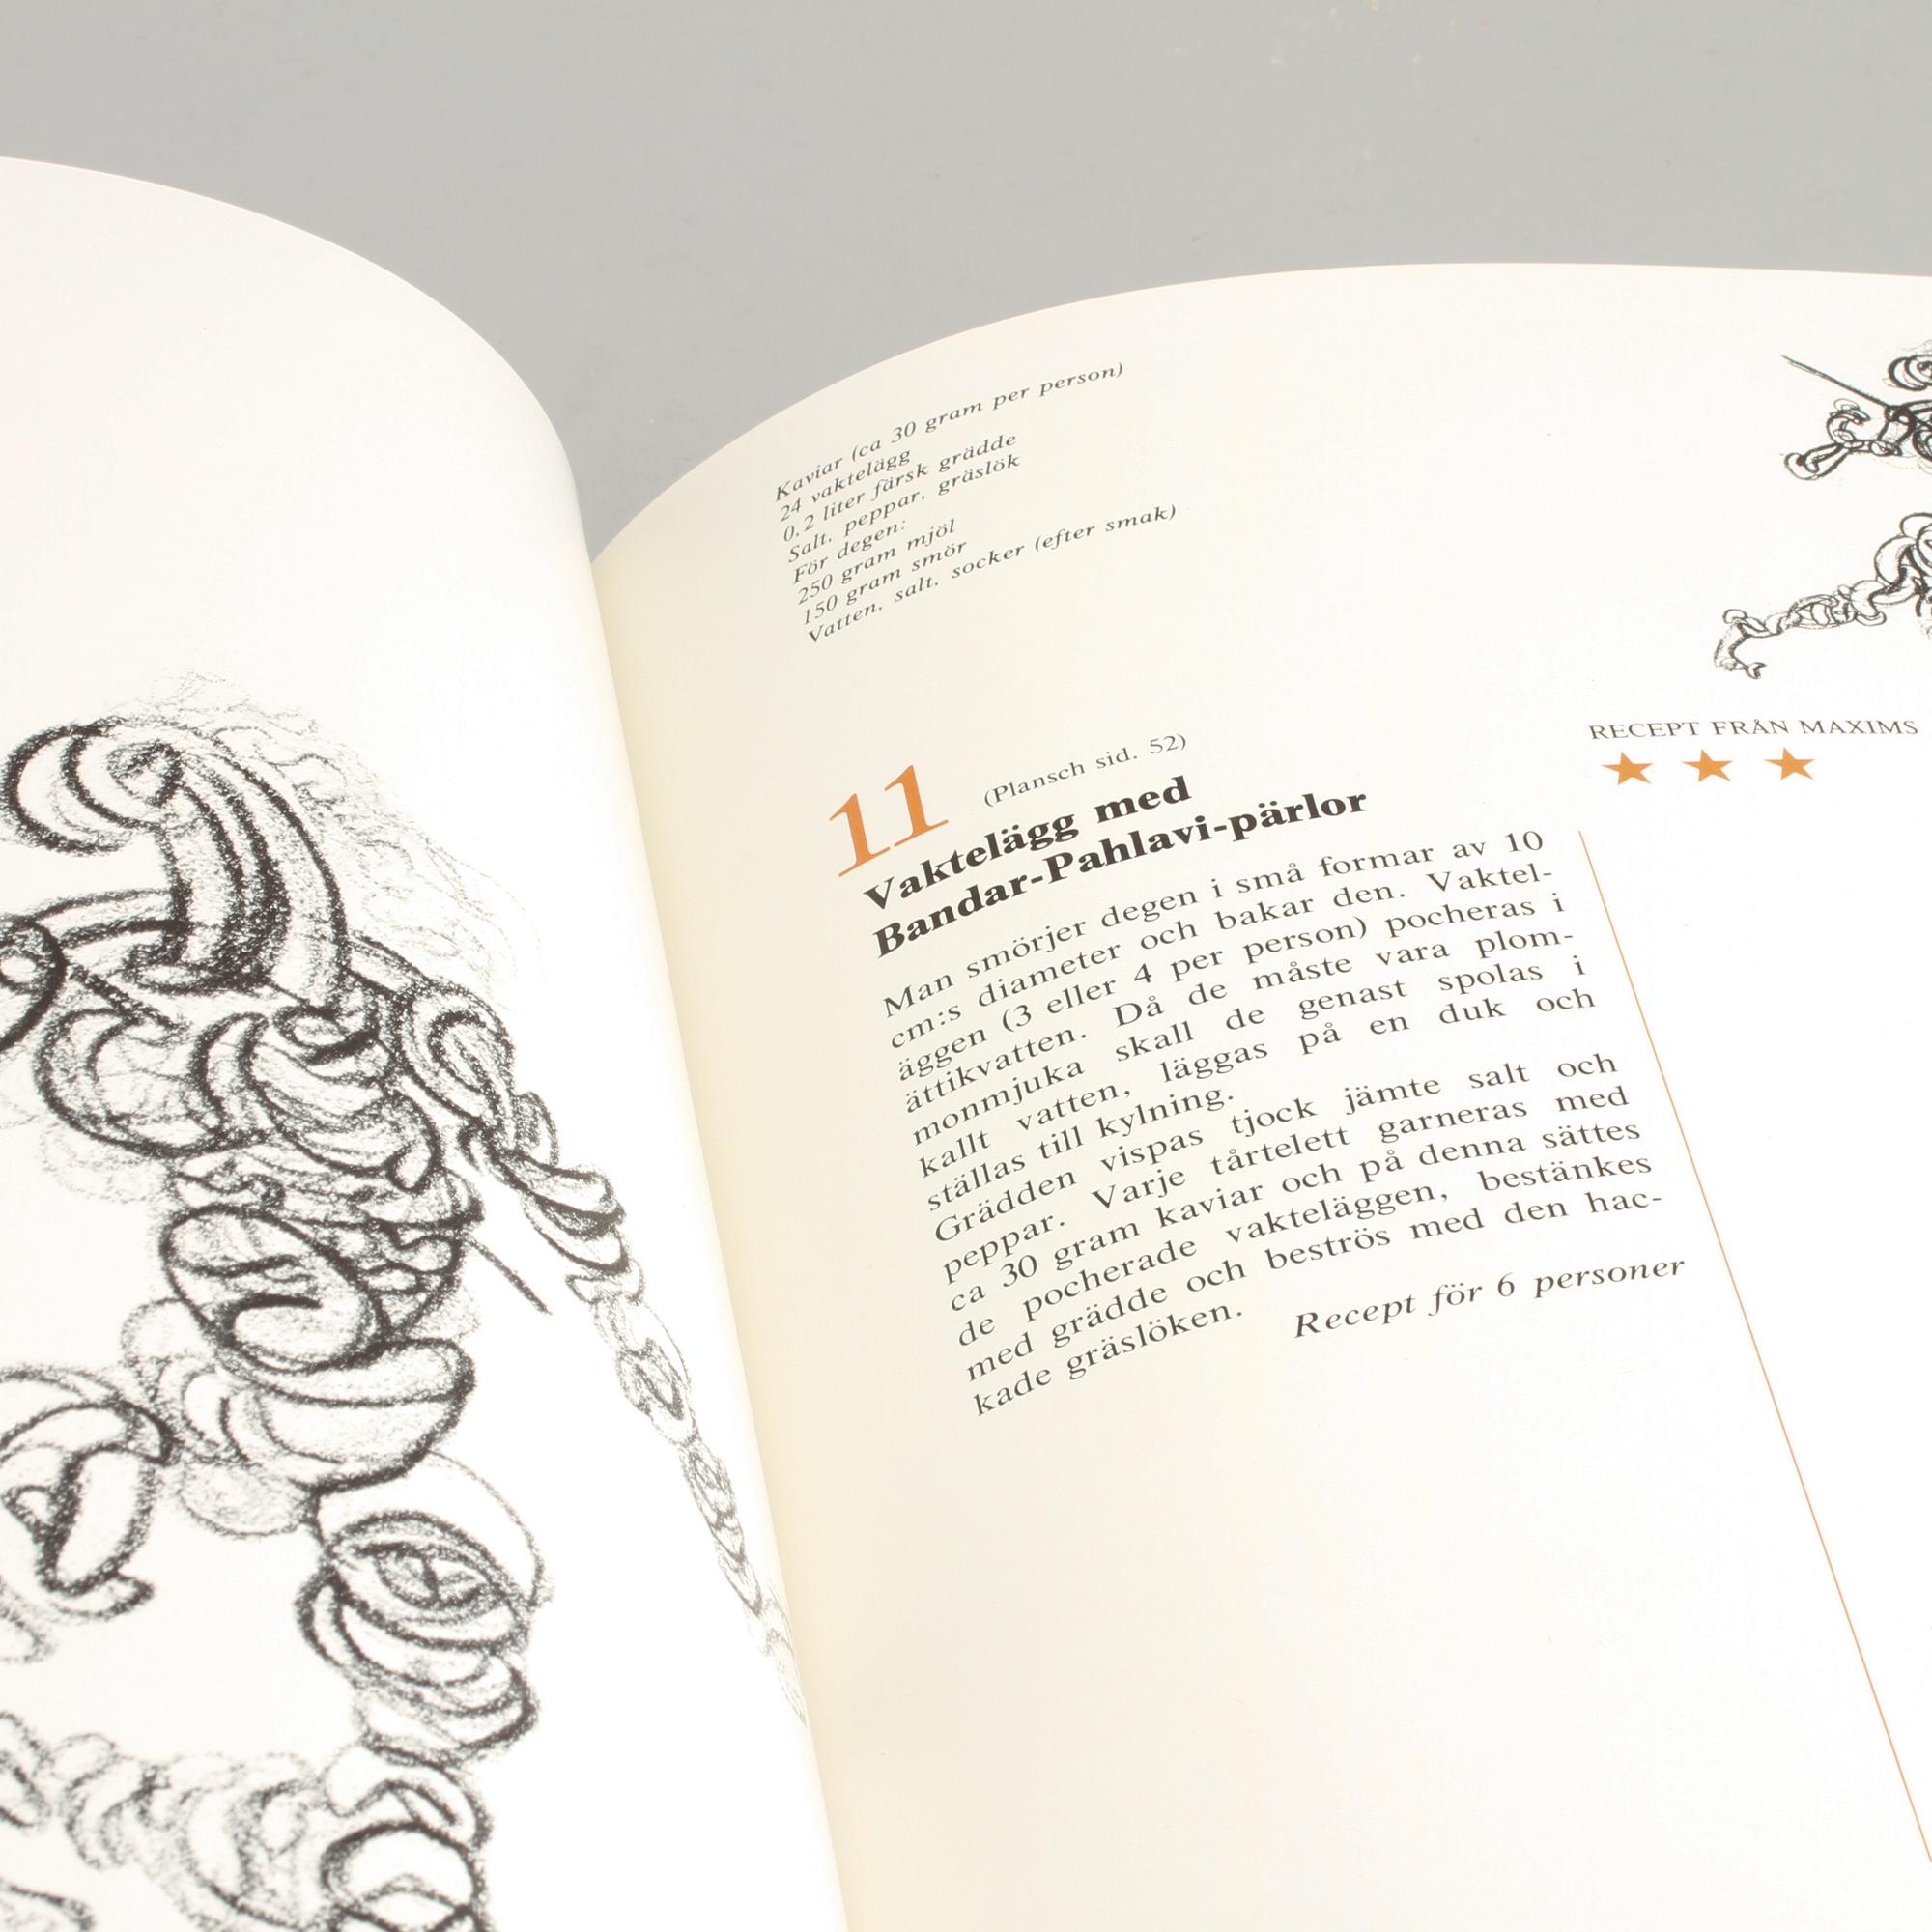 Kaviar (ca 30 gram per person)
24 vaktelägg
0,2 liter färsk grädde
Salt, peppar, gräslök
För degen:
250 gram mjöl
150 gram smör
Vatten, salt, socker (efter smak)
RECEPT FRÅN MAXIMS
11
(Plansch sid. 52)
Vaktelägg med
Bandar-Pahlavi-pärlor
Man smörjer degen i små formar av 10
cm:s diameter och bakar den. Vaktel-
äggen (3 eller 4 per person) pocheras i
ättikvatten. Då de måste vara plom-
monmjuka skall de genast spolas i
kallt vatten, läggas på en duk och
ställas till kylning.
Grädden vispas tjock jämte salt och
peppar. Varje tårtelett garneras med
ca 30 gram kaviar och på denna sättes
de pocherade vakteläggen, bestänkes
med grädde och beströs med den hac-
kade gräslöken.
Recept för 6 personer